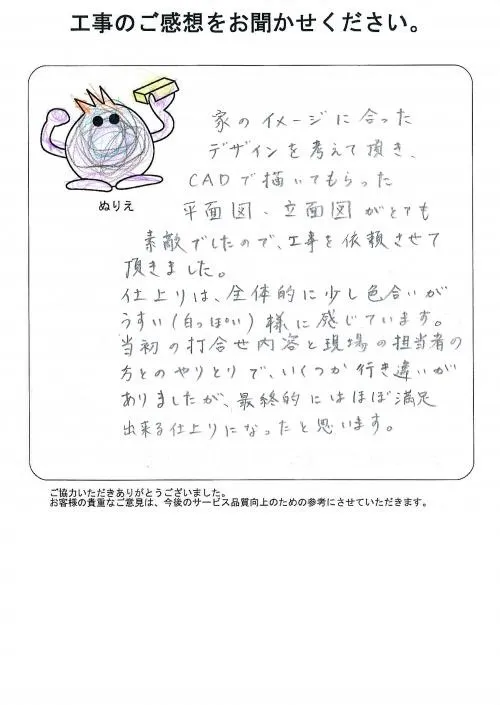 工事のご感想をお聞かせください。
ぬりえ
家のイメージに合った
デザインを考えて頂き、
CADで描いてもらった
平面図、立面図がとても
素敵でしたので、工事を依頼させて
頂きました。
仕上りは、全体的に少し色合いが
うすい(白っぽい)様に感じています。
当初の打合せ内容と現場の担当者の
方とのやりとりで、いくつか行き違いが
ありましたが、最終的にはほぼ満足
出来る仕上りになったと思います。
ご協力いただきありがとうございました。
お客様の貴重なご意見は、今後のサービス品質向上のための参考にさせていただきます。